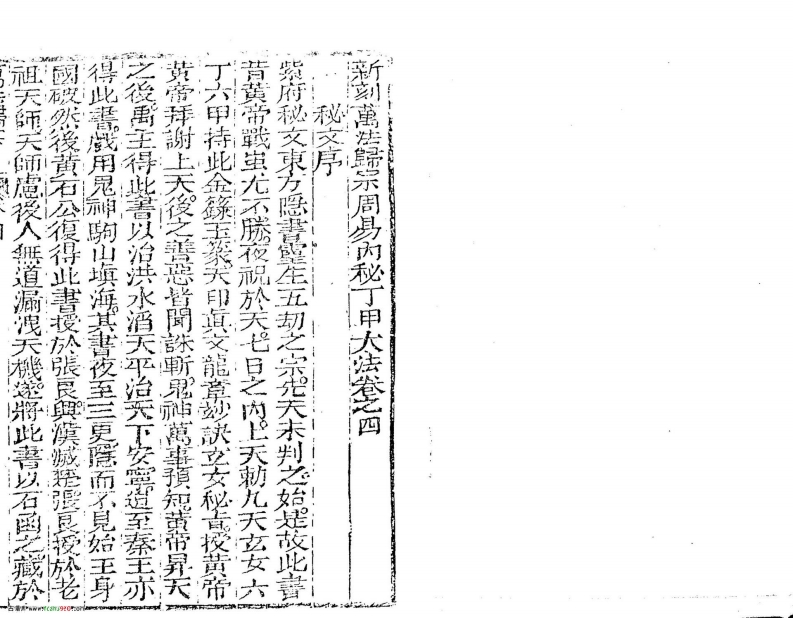 新刻萬法歸宗周易內秘丁甲大法卷之四
秘文序
紫府秘文東方隱書靈生五劫之宗先天未判之始是故此書
昔黃帝戰蚩尤不勝夜祝於天七日之內上天勅九天玄女六
丁六甲持此金籙玉篆天印眞文龍章妙訣玄女秘旨授黃帝
黃帝拜謝上天後之善惡皆聞誅斬鬼神萬事預知黃帝昇天
之後禹王得此書以治洪水滔天平治天下安寧道至秦王亦
得此書戲用鬼神駒山塡海其書夜至三更隱而不見始王身
國破然後黃石公復得此書授於張良興漢滅楚張良授於老
祖天師天師慮後人無道漏洩天機遂將此書以石函之藏於